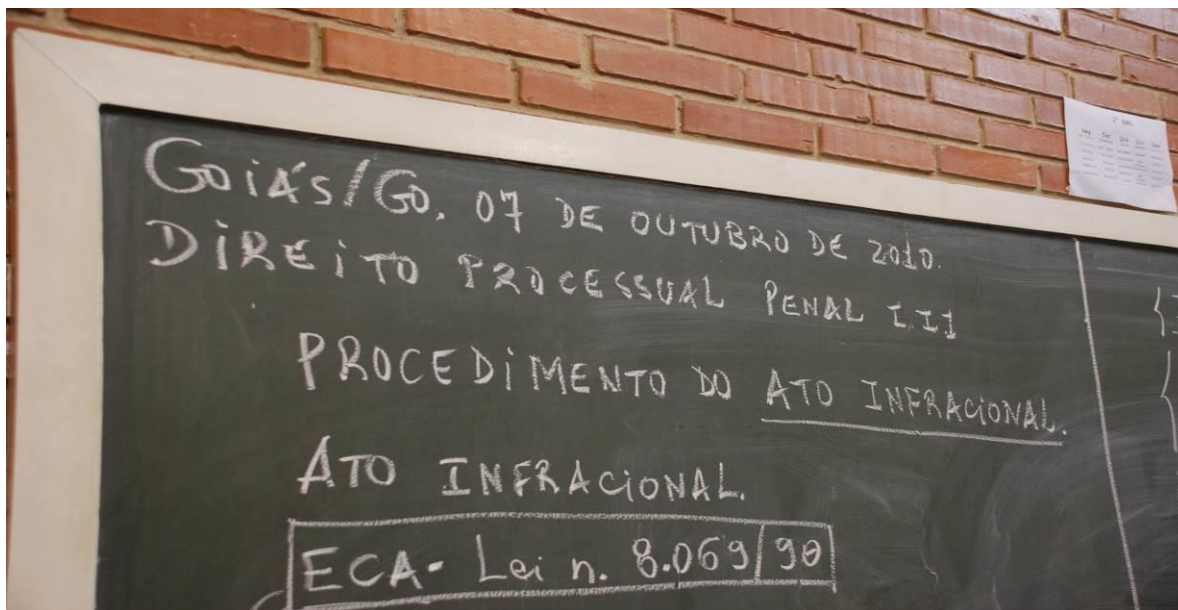 GOIÁS/GO, 07 DE OUTUBRO DE 2010.
DIREITO PROCESSUAL PENAL III
PROCEDIMENTO DO ATO INFRACIONAL.
ATO INFRACIONAL.
ECA- Lei n. 8.069/90